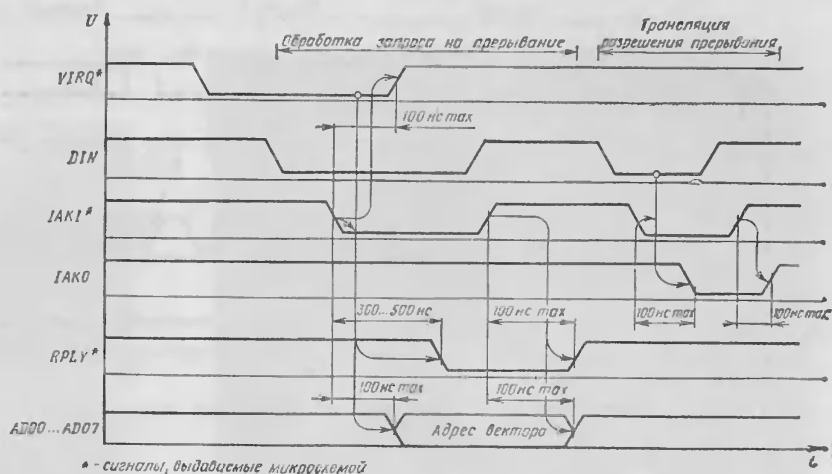 U
Обработка запроса на прерывание
Трансляция
разрешения прерывания
VIRQ*
100 нс max
DIN
IAKI*
IAKO
300...500 нс
100 нс max
100 нс max
100 нс max
RPLY*
100 нс max
100 нс max
AD00...AD07
Адрес вектора
t
* - сигналы, выдаваемые микросхемой